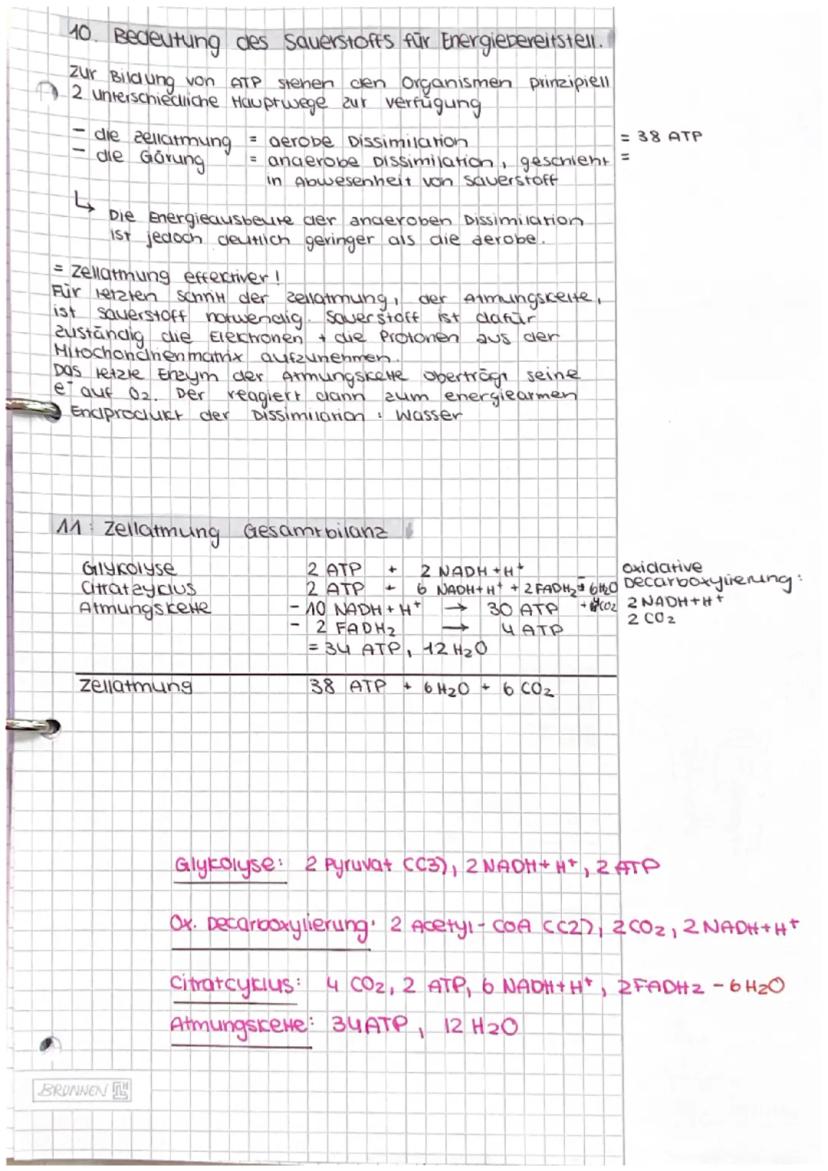 10. Bedeutung des Sauerstoffs für Energiebereitstell.
Zur Bildung von ATP stehen den Organismen prinzipiell
2 unterschiedliche Hauptwege zur Verfügung
- die Zellatmung = aerobe Dissimilation = 38 ATP
- die Gärung = anaerobe Dissimilation, geschieht =
in Abwesenheit von Sauerstoff
↳ Die Energieausbeute der anaeroben Dissimilation
ist jedoch deutlich geringer als die aerobe.
= Zellatmung effectiver!
Für letzten Schritt der Zellatmung, der Atmungskette,
ist Sauerstoff notwendig. Sauerstoff ist dafür
zuständig die Elektronen + die Protonen aus der
Mitochondrienmatrix aufzunehmen.
Das letzte Enzym der Atmungskette überträgt seine
e⁻ auf O₂. Der reagiert dann zum energiearmen
Endprodukt der Dissimilation: Wasser
11: Zellatmung Gesamtbilanz
Glykolyse 2 ATP + 2 NADH+H⁺ oxidative
Citratzyclus 2 ATP + 6 NADH+H⁺ + 2 FADH₂ - 6H₂O Decarboxylierung:
Atmungskette - 10 NADH+H⁺ → 30 ATP + 4CO₂ 2 NADH+H⁺
- 2 FADH₂ → 4 ATP 2 CO₂
= 34 ATP, 12 H₂O
Zellatmung 38 ATP + 6H₂O + 6 CO₂
Glykolyse: 2 Pyruvat (C3), 2 NADH+H⁺, 2 ATP
Ox. Decarboxylierung: 2 Acetyl-CoA (C2), 2CO₂, 2 NADH+H⁺
Citratcyklus: 4 CO₂, 2 ATP, 6 NADH+H⁺, 2FADH2 - 6H₂O
Atmungskette: 34ATP, 12 H₂O
BRUNNEN